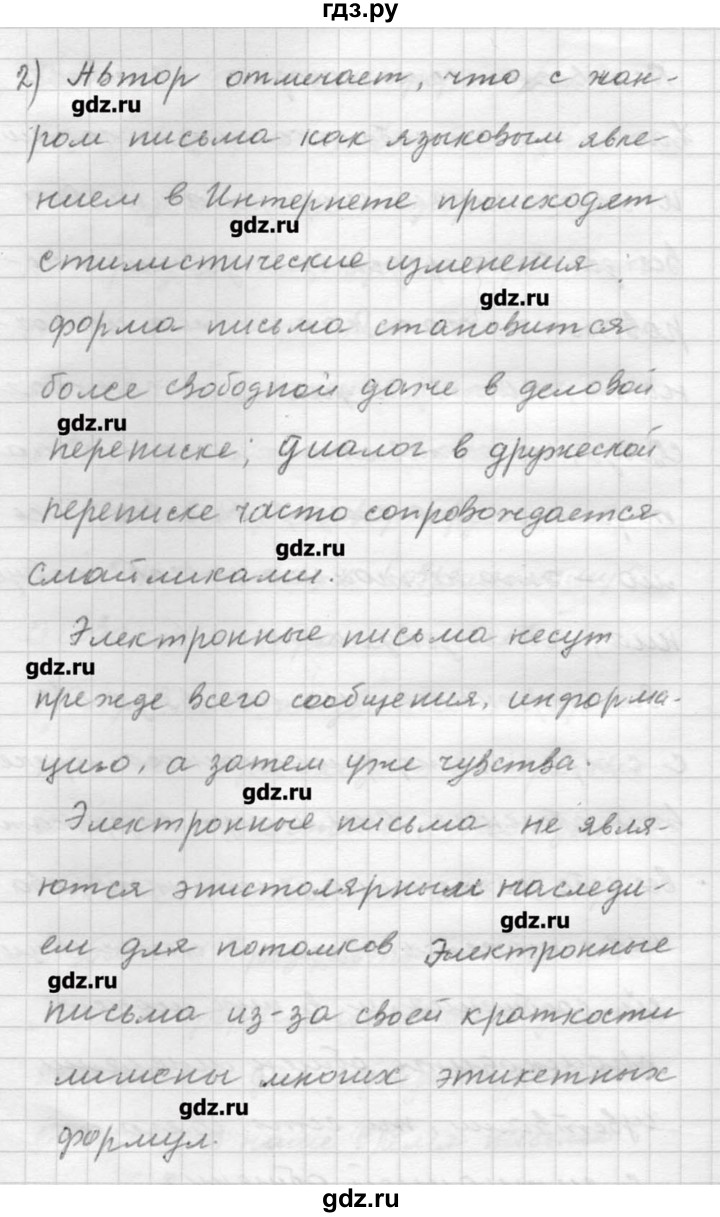 гдз.ру
2) Автор отмечает, что с жан-
gdz.ru
ром письма как языковым явле-
нием в Интернете происходят
gdz.ru
стилистические изменения
gdz.ru
форма письма становится
более свободной даже в деловой
gdz.ru
переписке; диалог в дружеской
переписке часто сопровождается
gdz.ru
смайликами.
Электронные письма несут
gdz.ru
прежде всего сообщения, информа-
цию, а затем уже чувства.
gdz.ru
Электронные письма не явля-
ются эпистолярным наследи-
gdz.ru
ем для потомков Электронные
gdz.ru
письма из-за своей краткости
лишены многих этикетных
gdz.ru
формул.
gdz.ru